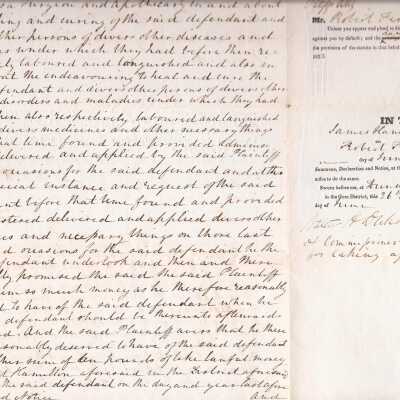 as a surgeon and apothecary in and about
ing and curing of the said defendant and
other persons of divers other diseases and
es under which they had before then re-
ly laboured and languished and also in
out the endeavouring to heal and cure the
fendant and divers other persons of divers other
disorders and maladies under which they had
hen also respectively laboured and languished
divers medicines and other necessary things
that time found and provided adminis
delivered and applied by the said Plaintiff
occasions for the said defendant and at his
ecial instance and request of the said
nt before that time found and provided
istered delivered and applied divers other
es and necessary things on those last
d occasions for the said defendant he the
efendant undertook and then and there
lly promised the said the said Plaintiff
im so much money as he therefore reasonably
d to have of the said defendant when he
defendant should be thereunto afterwards
ed. And the said Plaintiff avers that he there
asonably deserved to have of the said defendant
ther sum of ten pounds of like lawful money
d Hamilton aforesaid in the District aforesaid
the said defendant on the day and year last afore
d Notice and
Mr. Robert
Unless you appear and plead to this
against you by default; and the
the provisions of the statute in that behalf
1823.
IN T
James Ham
Robert
day of June
Summons, Declaration and Notice, at t
office to do the same.
Sworn before me, at
in the Gore District, this 26
day of June
A Commissioner
for taking af